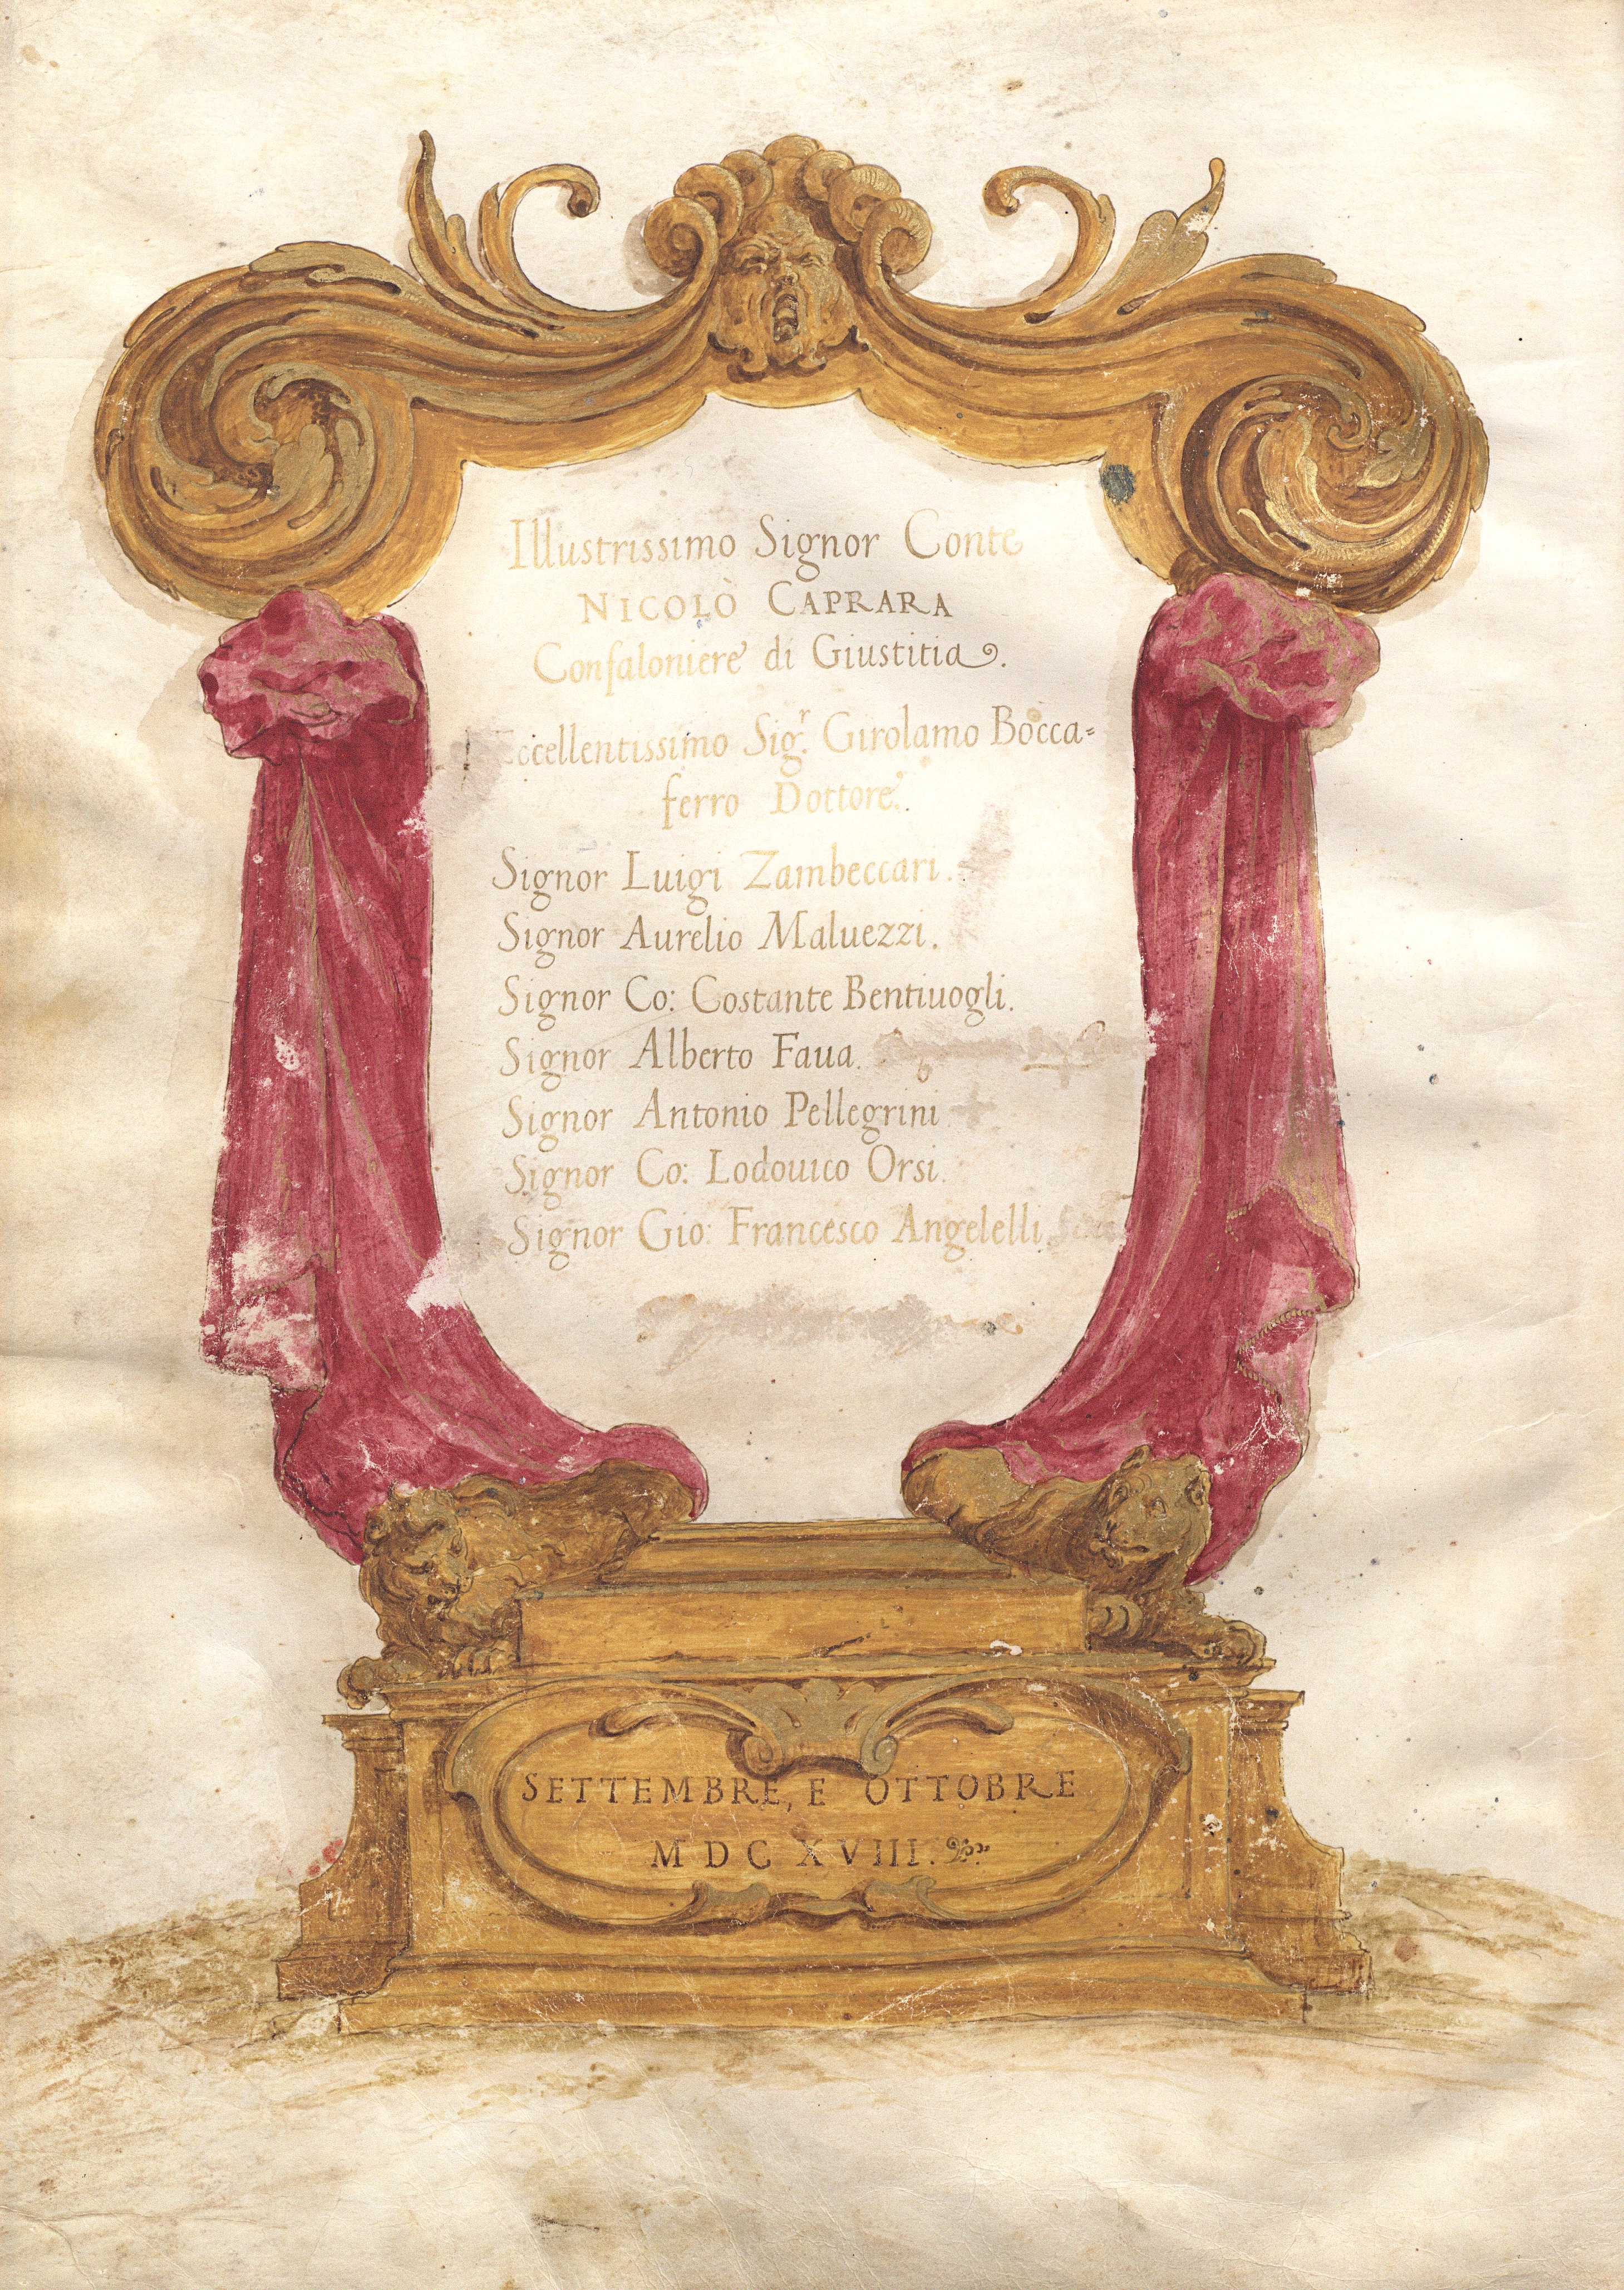 Illustrissimo Signor Conte
NICOLÒ CAPRARA
Confaloniere di Giustitia.
Eccellentissimo Sig.r Girolamo Bocca=
ferro Dottore.
Signor Luigi Zambeccari.
Signor Aurelio Maluezzi.
Signor Co: Costante Bentiuogli.
Signor Alberto Faua.
Signor Antonio Pellegrini
Signor Co: Lodouico Orsi.
Signor Gio: Francesco Angelelli.
SETTEMBRE, E OTTOBRE
MDCXVIII.